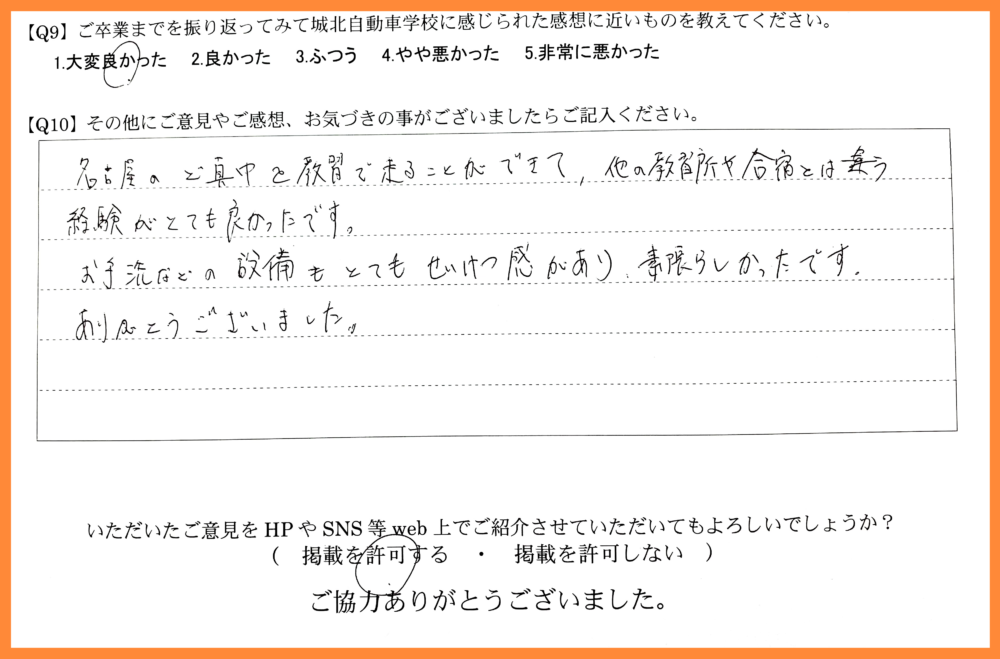 【Q9】ご卒業までを振り返ってみて城北自動車学校に感じられた感想に近いものを教えてください。
1.大変良かった　2.良かった　3.ふつう　4.やや悪かった　5.非常に悪かった
【Q10】その他にご意見やご感想、お気づきの事がございましたらご記入ください。
名古屋のど真中を教習で走ることができて、他の教習所や合宿とは違う
経験がとても良かったです。
お手洗などの設備もとてもせいけつ感があり、素晴らしかったです。
ありがとうございました。
いただいたご意見をHPやSNS等web上でご紹介させていただいてもよろしいでしょうか？
（　掲載を許可する　・　掲載を許可しない　）
ご協力ありがとうございました。